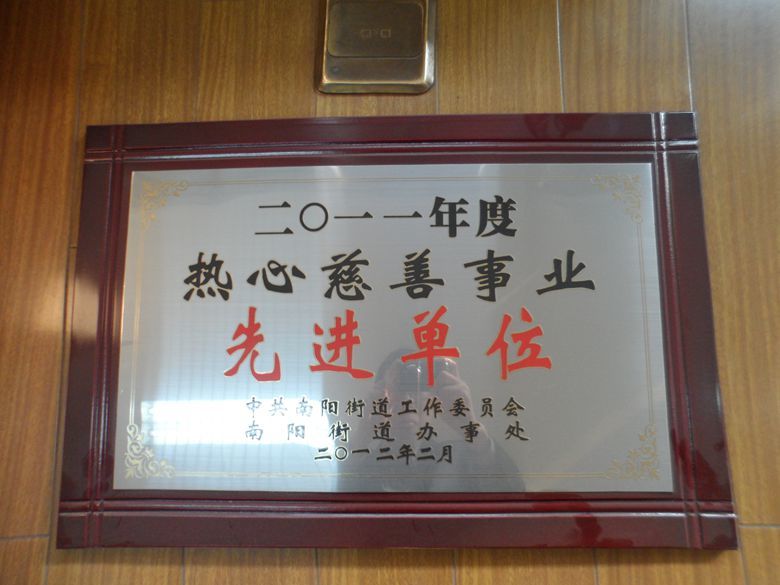 二〇一一年度
热心慈善事业
先进单位
中共南阳街道工作委员会
南阳街道办事处
二〇一二年二月